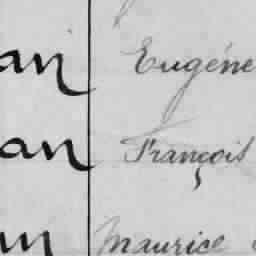 an Eugéne
an François
an Maurice